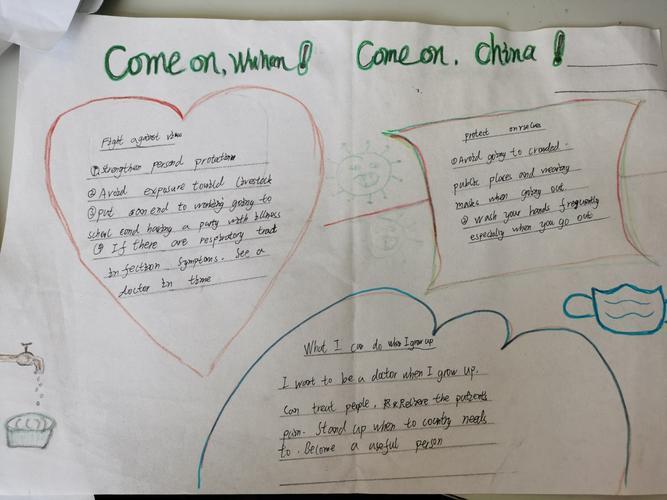 Come on, Wuhan!
Come on, China!
Fight against virus
① Strengthen personal protection
② Avoid exposure to wild livestock
③ put an end to working going to
school and having a party with illness
④ If there are respiratory tract
infection symptoms. See a
doctor in time
protect ourselves
① Avoid going to crowded
public places and wearing
masks when going out
② Wash your hands frequently
especially when you go out
What I can do when I grow up
I want to be a doctor when I grow up.
Can treat people, Relieve the patients
pain. Stand up when to country needs
to. Become a useful person